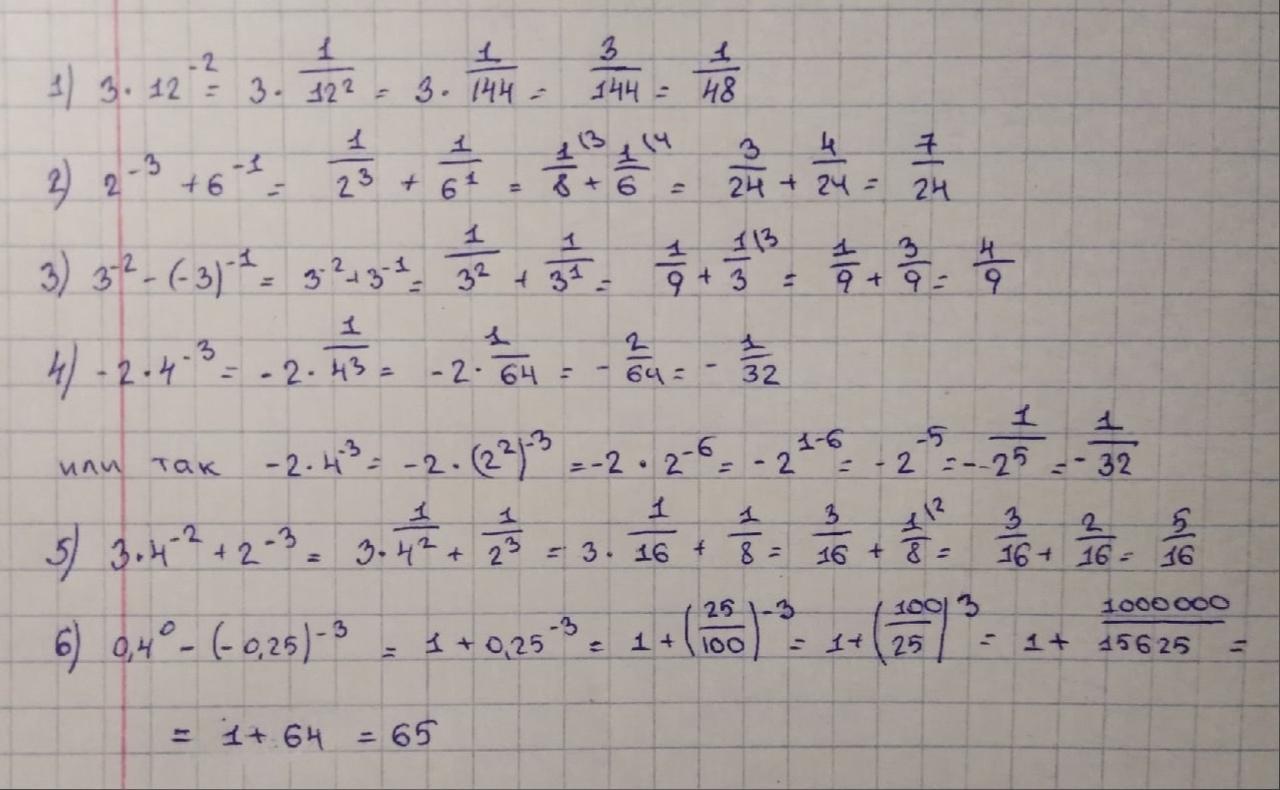 1) 3 · 12⁻² = 3 · 1/12² = 3 · 1/144 = 3/144 = 1/48
2) 2⁻³ + 6⁻¹ = 1/2³ + 1/6¹ = 1/8 \3 + 1/6 \4 = 3/24 + 4/24 = 7/24
3) 3⁻² - (-3)⁻¹ = 3⁻² + 3⁻¹ = 1/3² + 1/3¹ = 1/9 + 1/3 \3 = 1/9 + 3/9 = 4/9
4) -2 · 4⁻³ = -2 · 1/4³ = -2 · 1/64 = -2/64 = -1/32
или так -2 · 4⁻³ = -2 · (2²)⁻³ = -2 · 2⁻⁶ = -2¹⁻⁶ = -2⁻⁵ = -1/2⁵ = -1/32
5) 3 · 4⁻² + 2⁻³ = 3 · 1/4² + 1/2³ = 3 · 1/16 + 1/8 = 3/16 + 1/8 \2 = 3/16 + 2/16 = 5/16
6) 0,4⁰ - (-0,25)⁻³ = 1 + 0,25⁻³ = 1 + (25/100)⁻³ = 1 + (100/25)³ = 1 + 1000000/15625 =
= 1 + 64 = 65